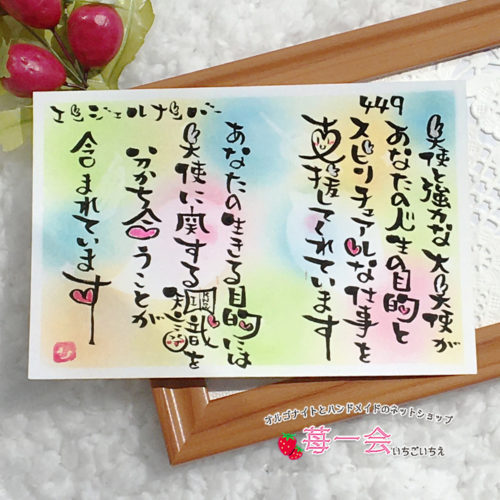 エンジェルナンバー
449
天使と強力な大天使が
あなたの人生の目的と
スピリチュアルな仕事を
支援してくれています
あなたの生きる目的には
天使に関する知識を
分かち合うことが
含まれています
オルゴナイトとハンドメイドのネットショップ
苺一会 いちごいちえ